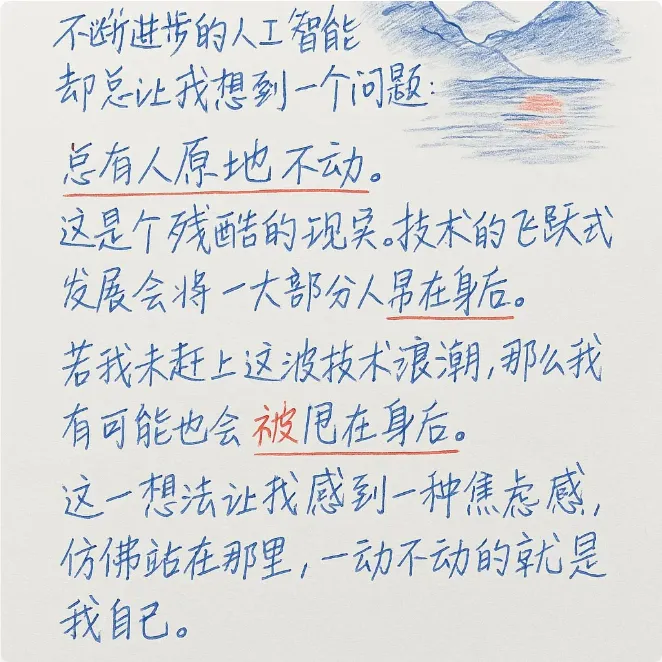 不断进步的人工智能
却总让我想到一个问题:
总有人原地不动。
这是个残酷的现实。技术的飞跃式
发展会将一大部分人帛在身后。
若我未赶上这波技术浪潮,那么我
有可能也会被甩在身后。
这一想法让我感到一种焦虑感,
仿佛站在那里,一动不动的就是
我自己。